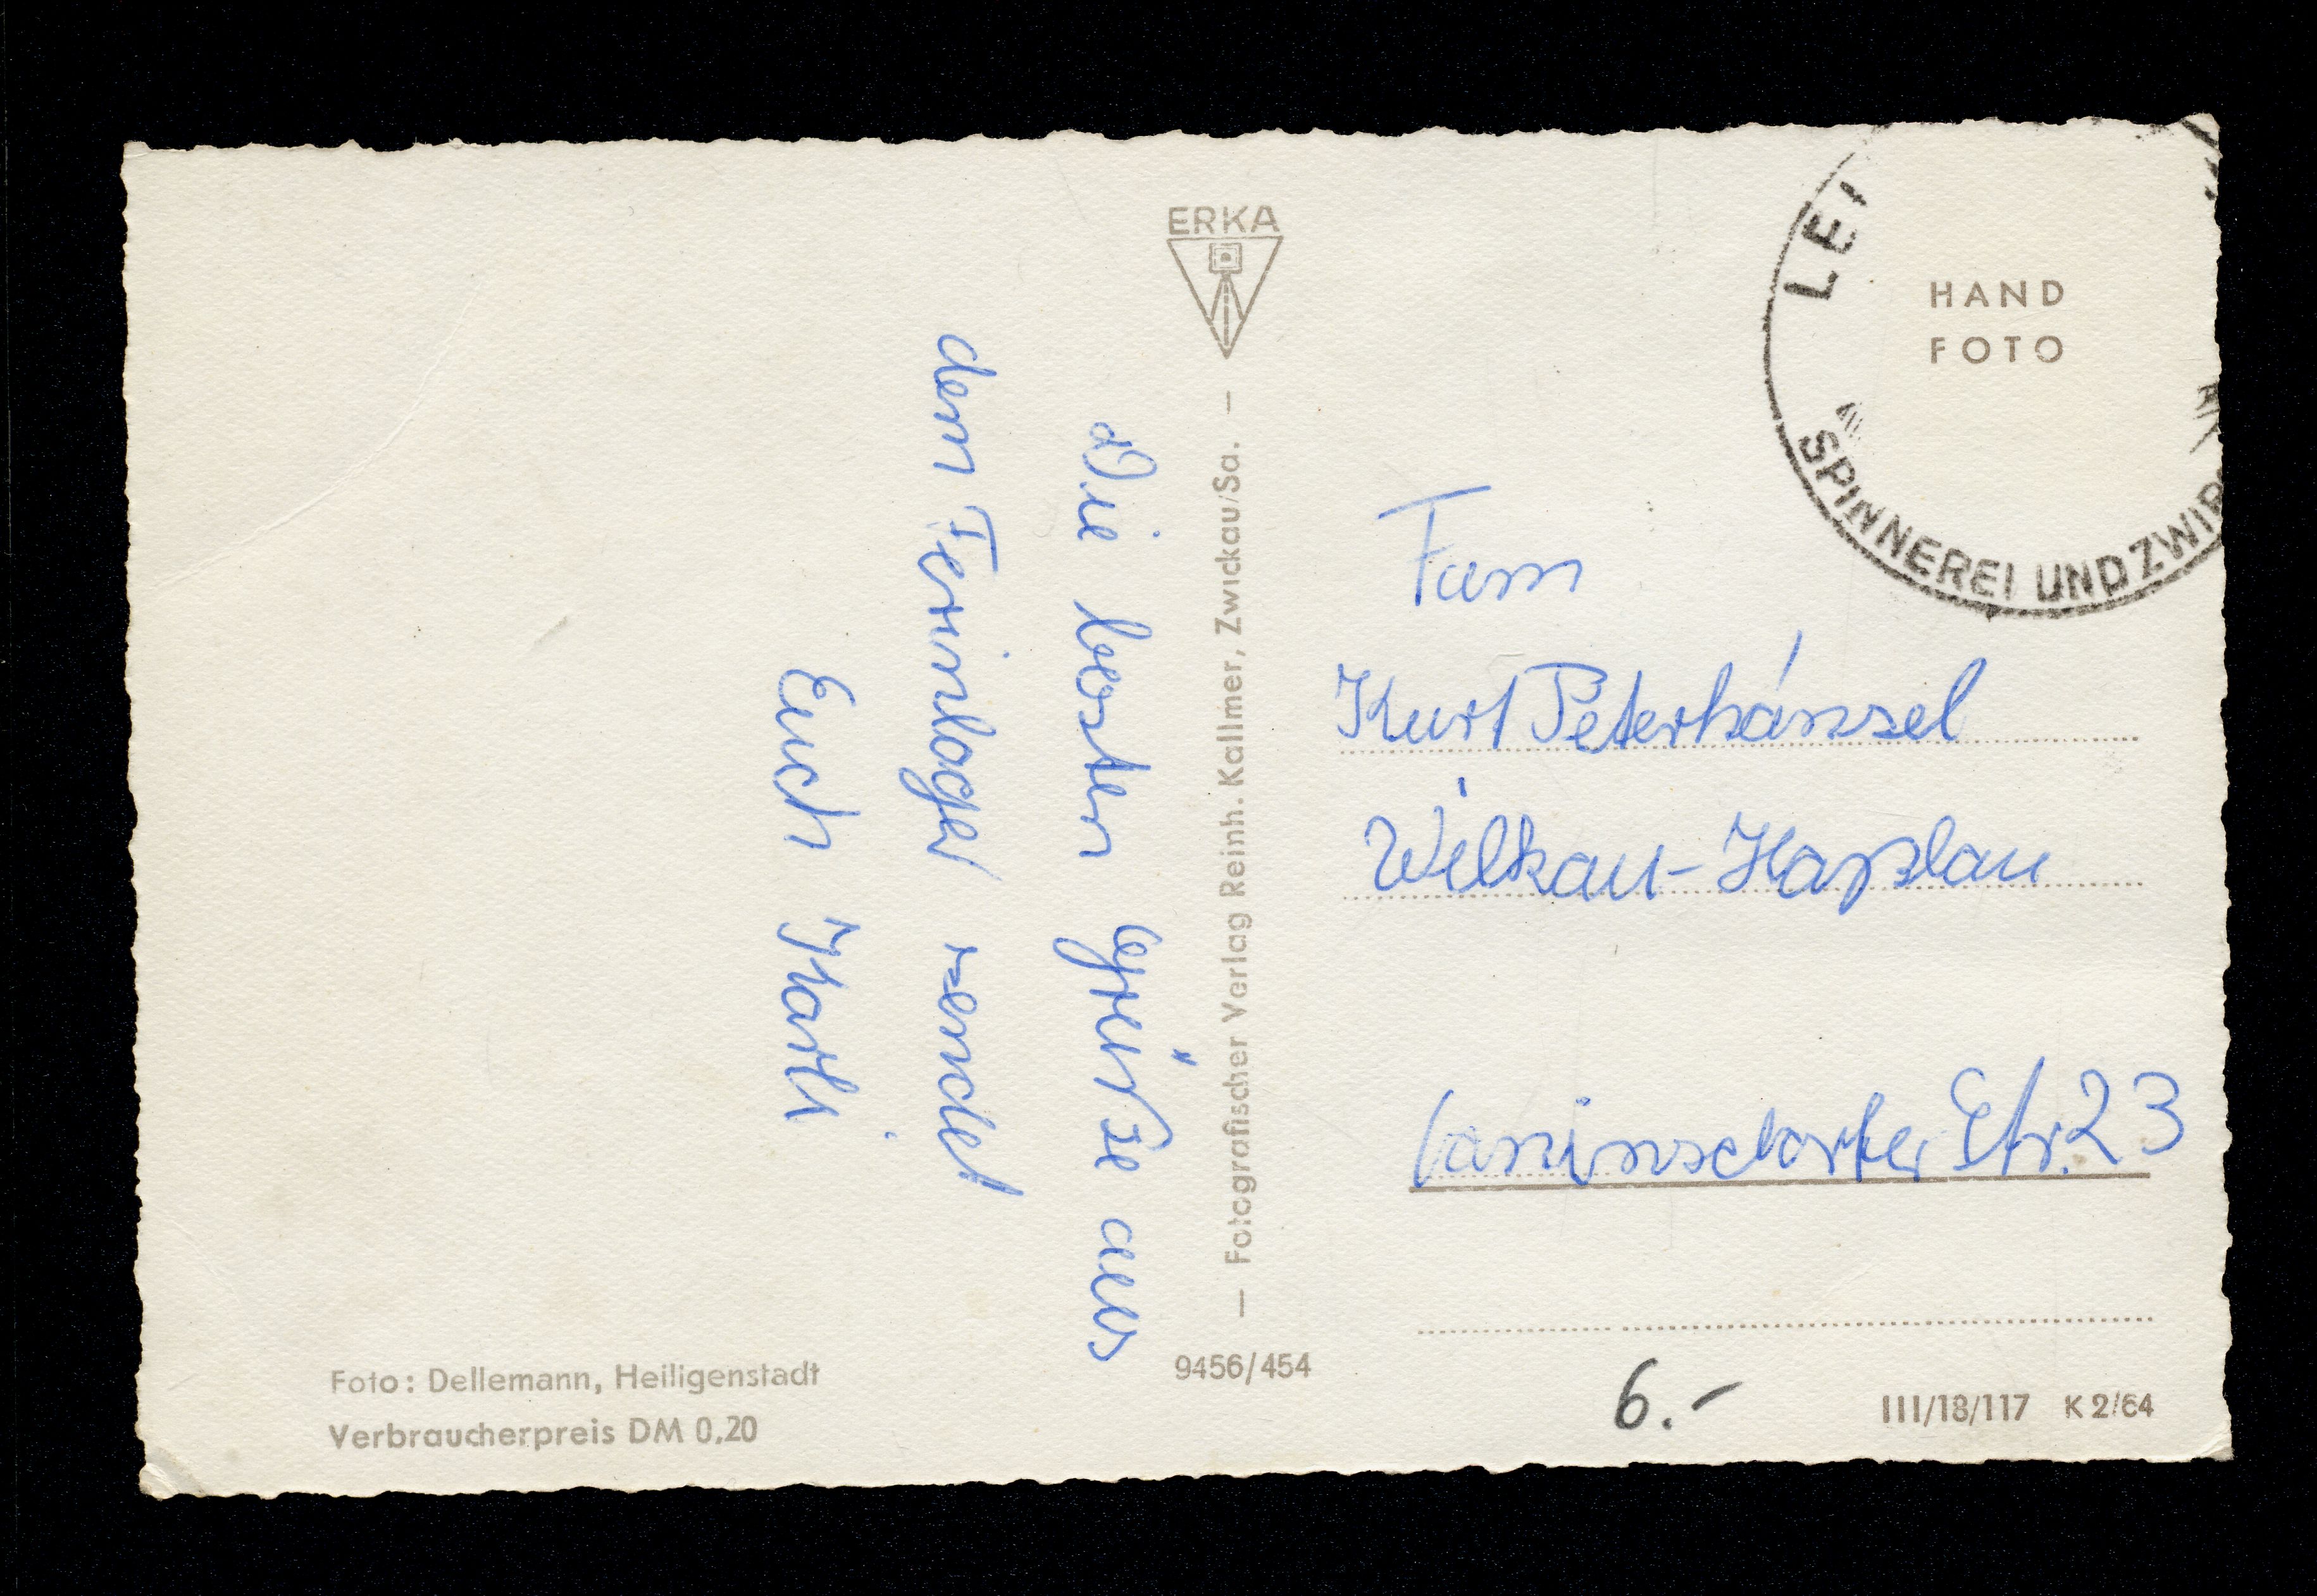 Die besten Grüße aus
dem Ferienlager sendet
Euch Karli
ERKA
— Fotografischer Verlag Reinh. Kallmer, Zwickau/Sa. —
9456/454
Foto: Dellemann, Heiligenstadt
Verbraucherpreis DM 0,20
HAND
FOTO
LEI
SPINNEREI UND ZWIR
Fam
Kurt Peterhänsel
Wilkau-Haßlau
Str. 23
6.-
III/18/117 K 2/64